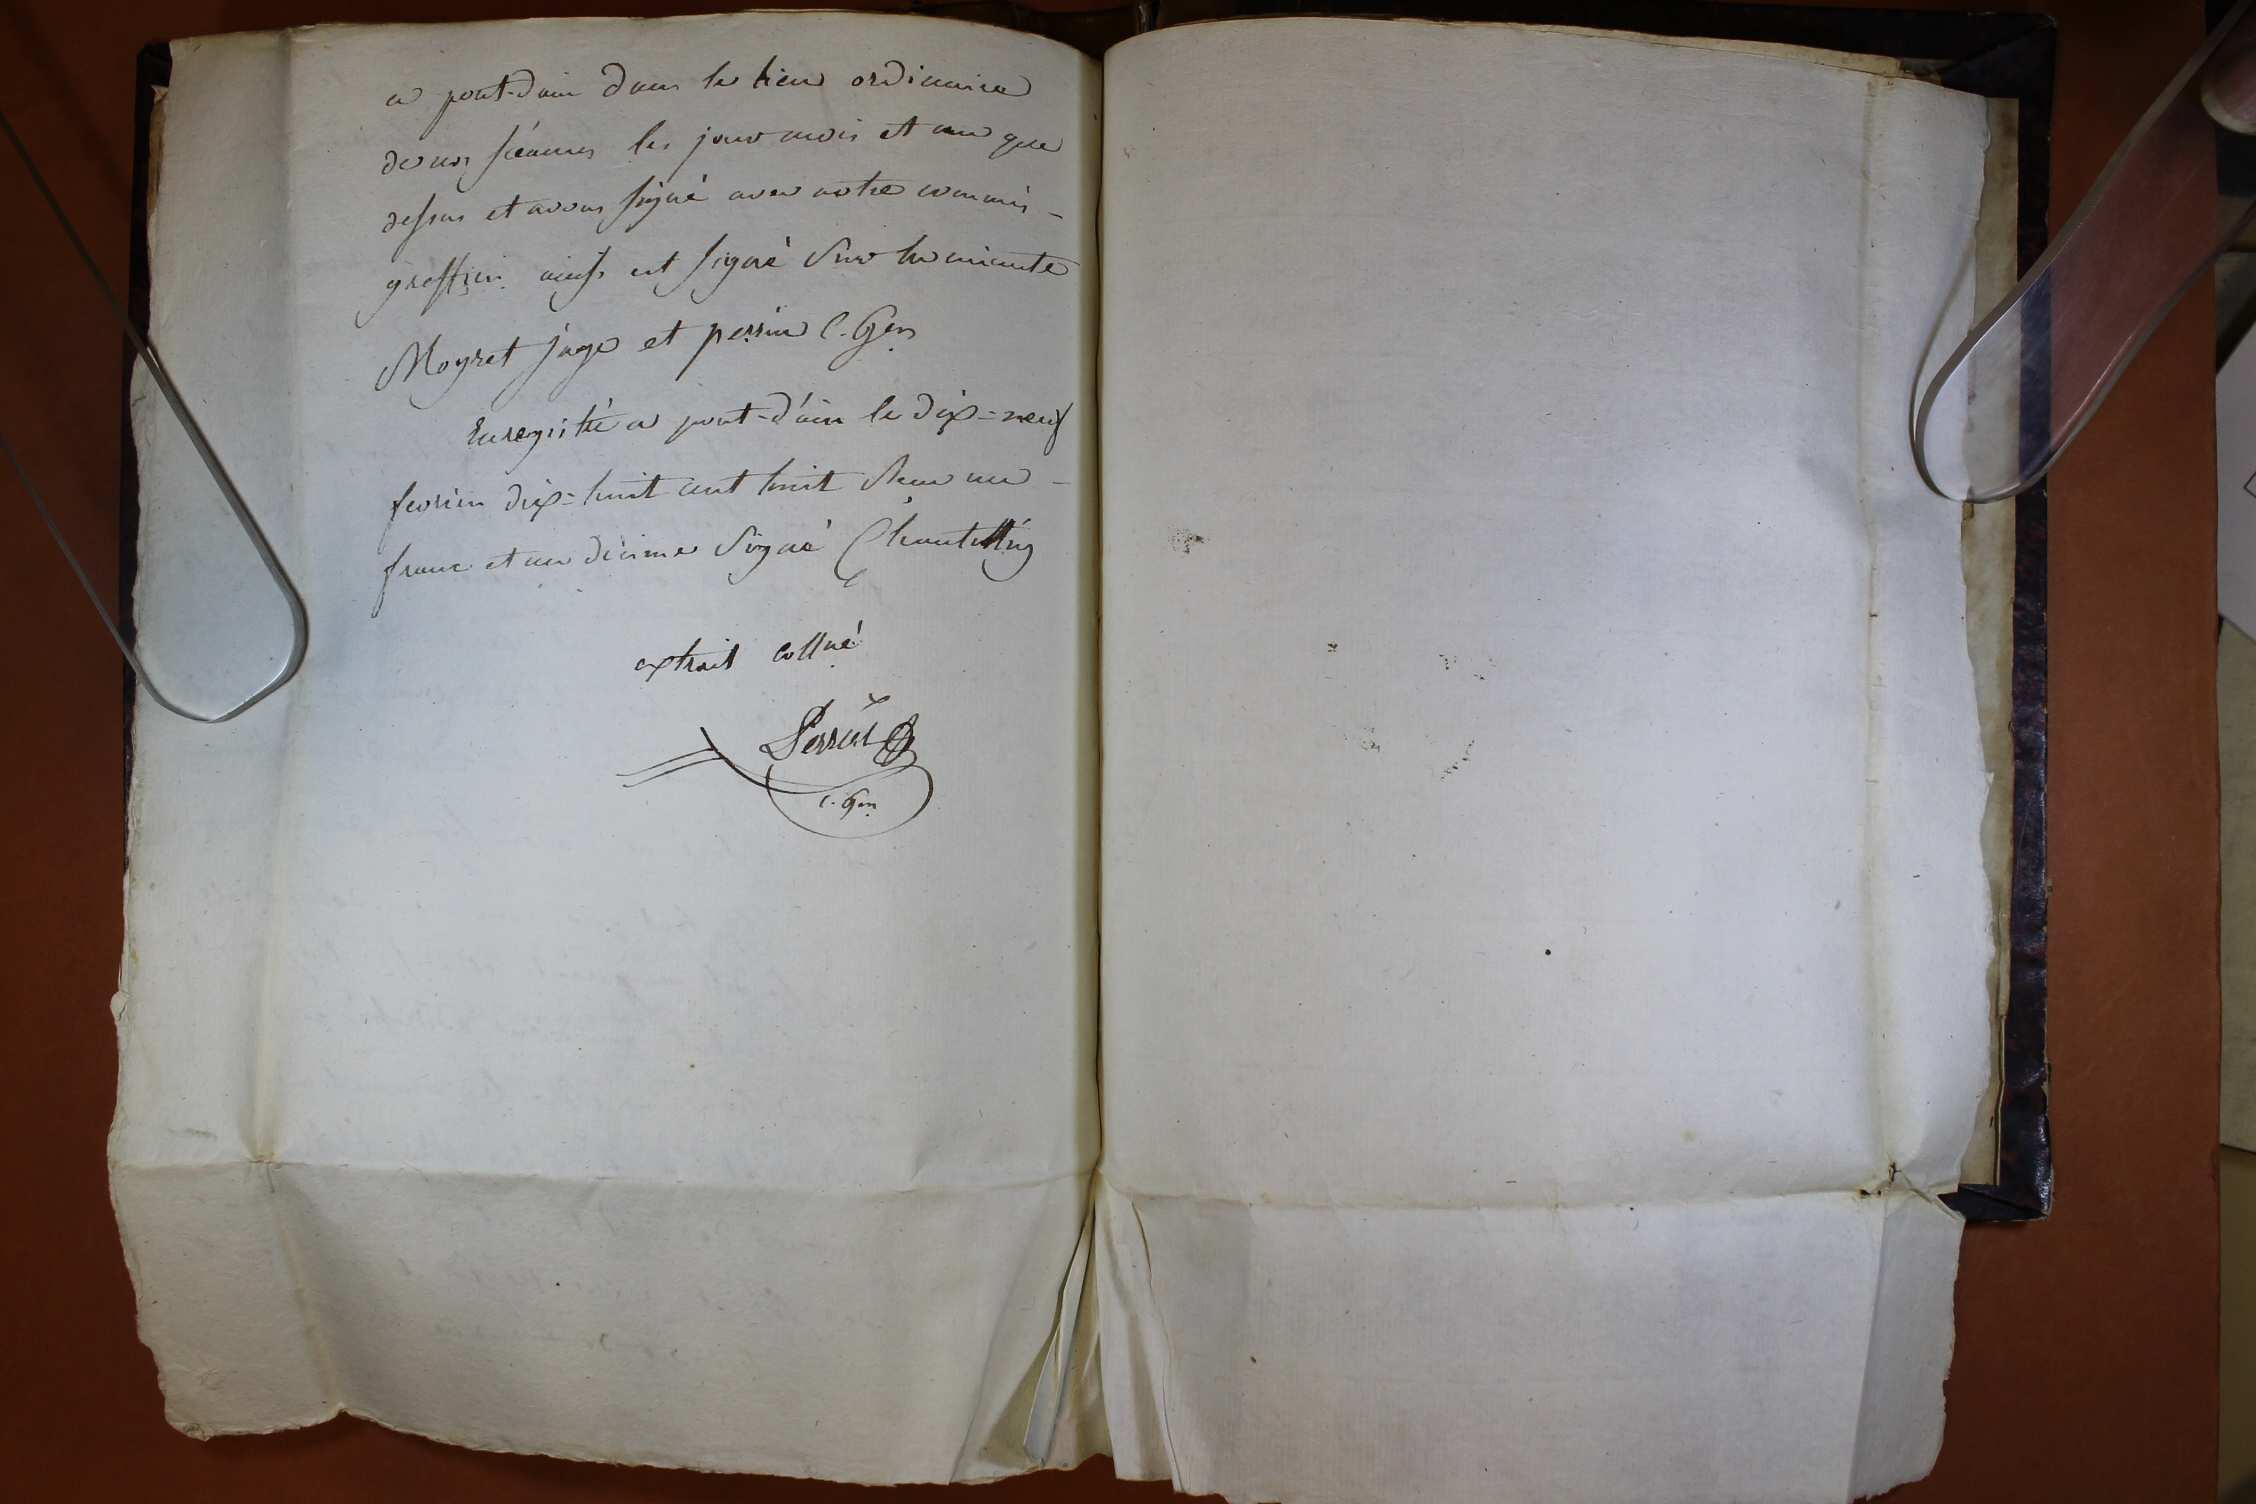 a pont-d'ain dans le lieu ordinaire
de nos séances les jour mois et an que
dessus et avons signé avec notre commis -
greffier. ainsi est signé sur la minute
Moyret juge et perrin C. Ger
Enregistré a pont-d'ain le dix=neuf
fevrier dix=huit cent huit Reçu un -
franc et un décime Signé Chantelly
extrait collné
Perrin
c. Ger